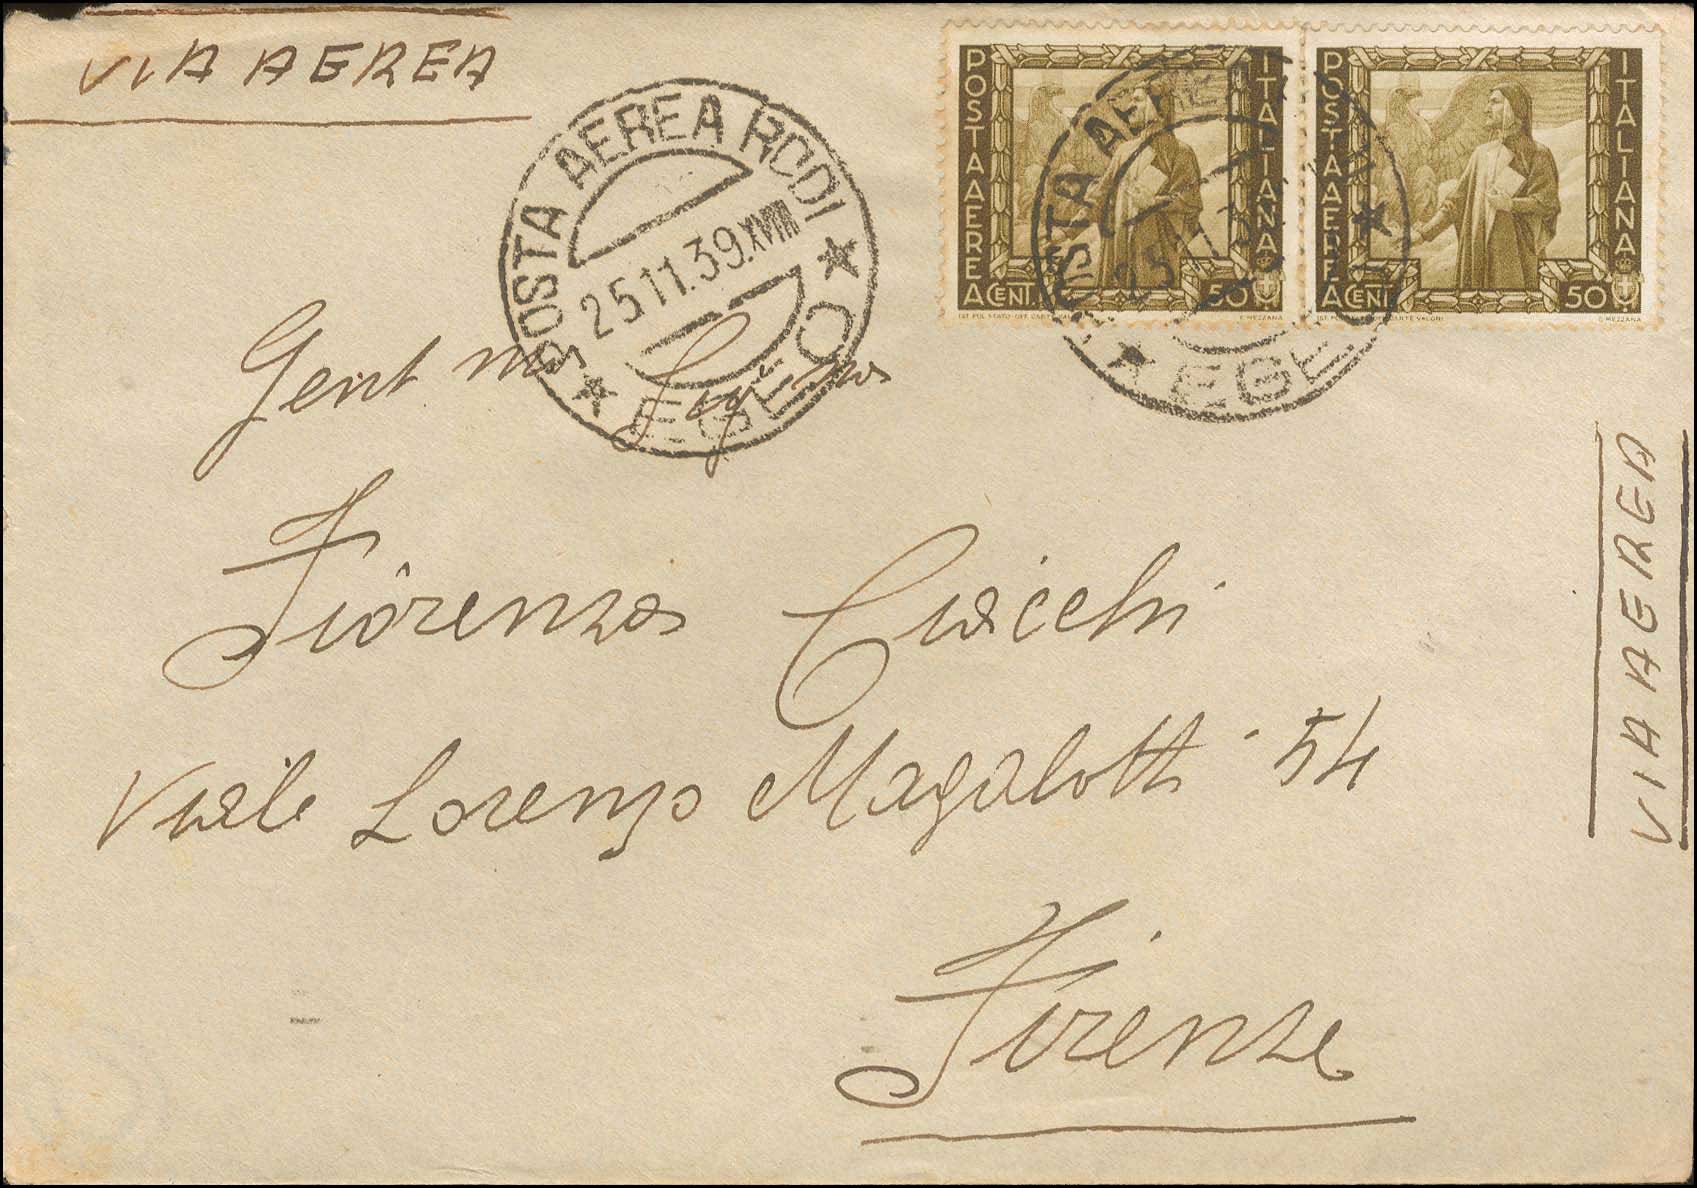 VIA AEREA
POSTA AEREA RODI
25.11.39.XVIII
EGEO
POSTA AEREA
ITALIANA
CENT. 50
POSTA AEREA
ITALIANA
CENT. 50
POSTA AEREA
25
EGEO
IST. POL. STATO OFF. CARTE
G. MEZZANA
CARTE VALORI
G. MEZZANA
Gent ma Sig. na
Fiorenza Ciacchi
Viale Lorenzo Magalotti - 54
Firenze
VIA AEREA